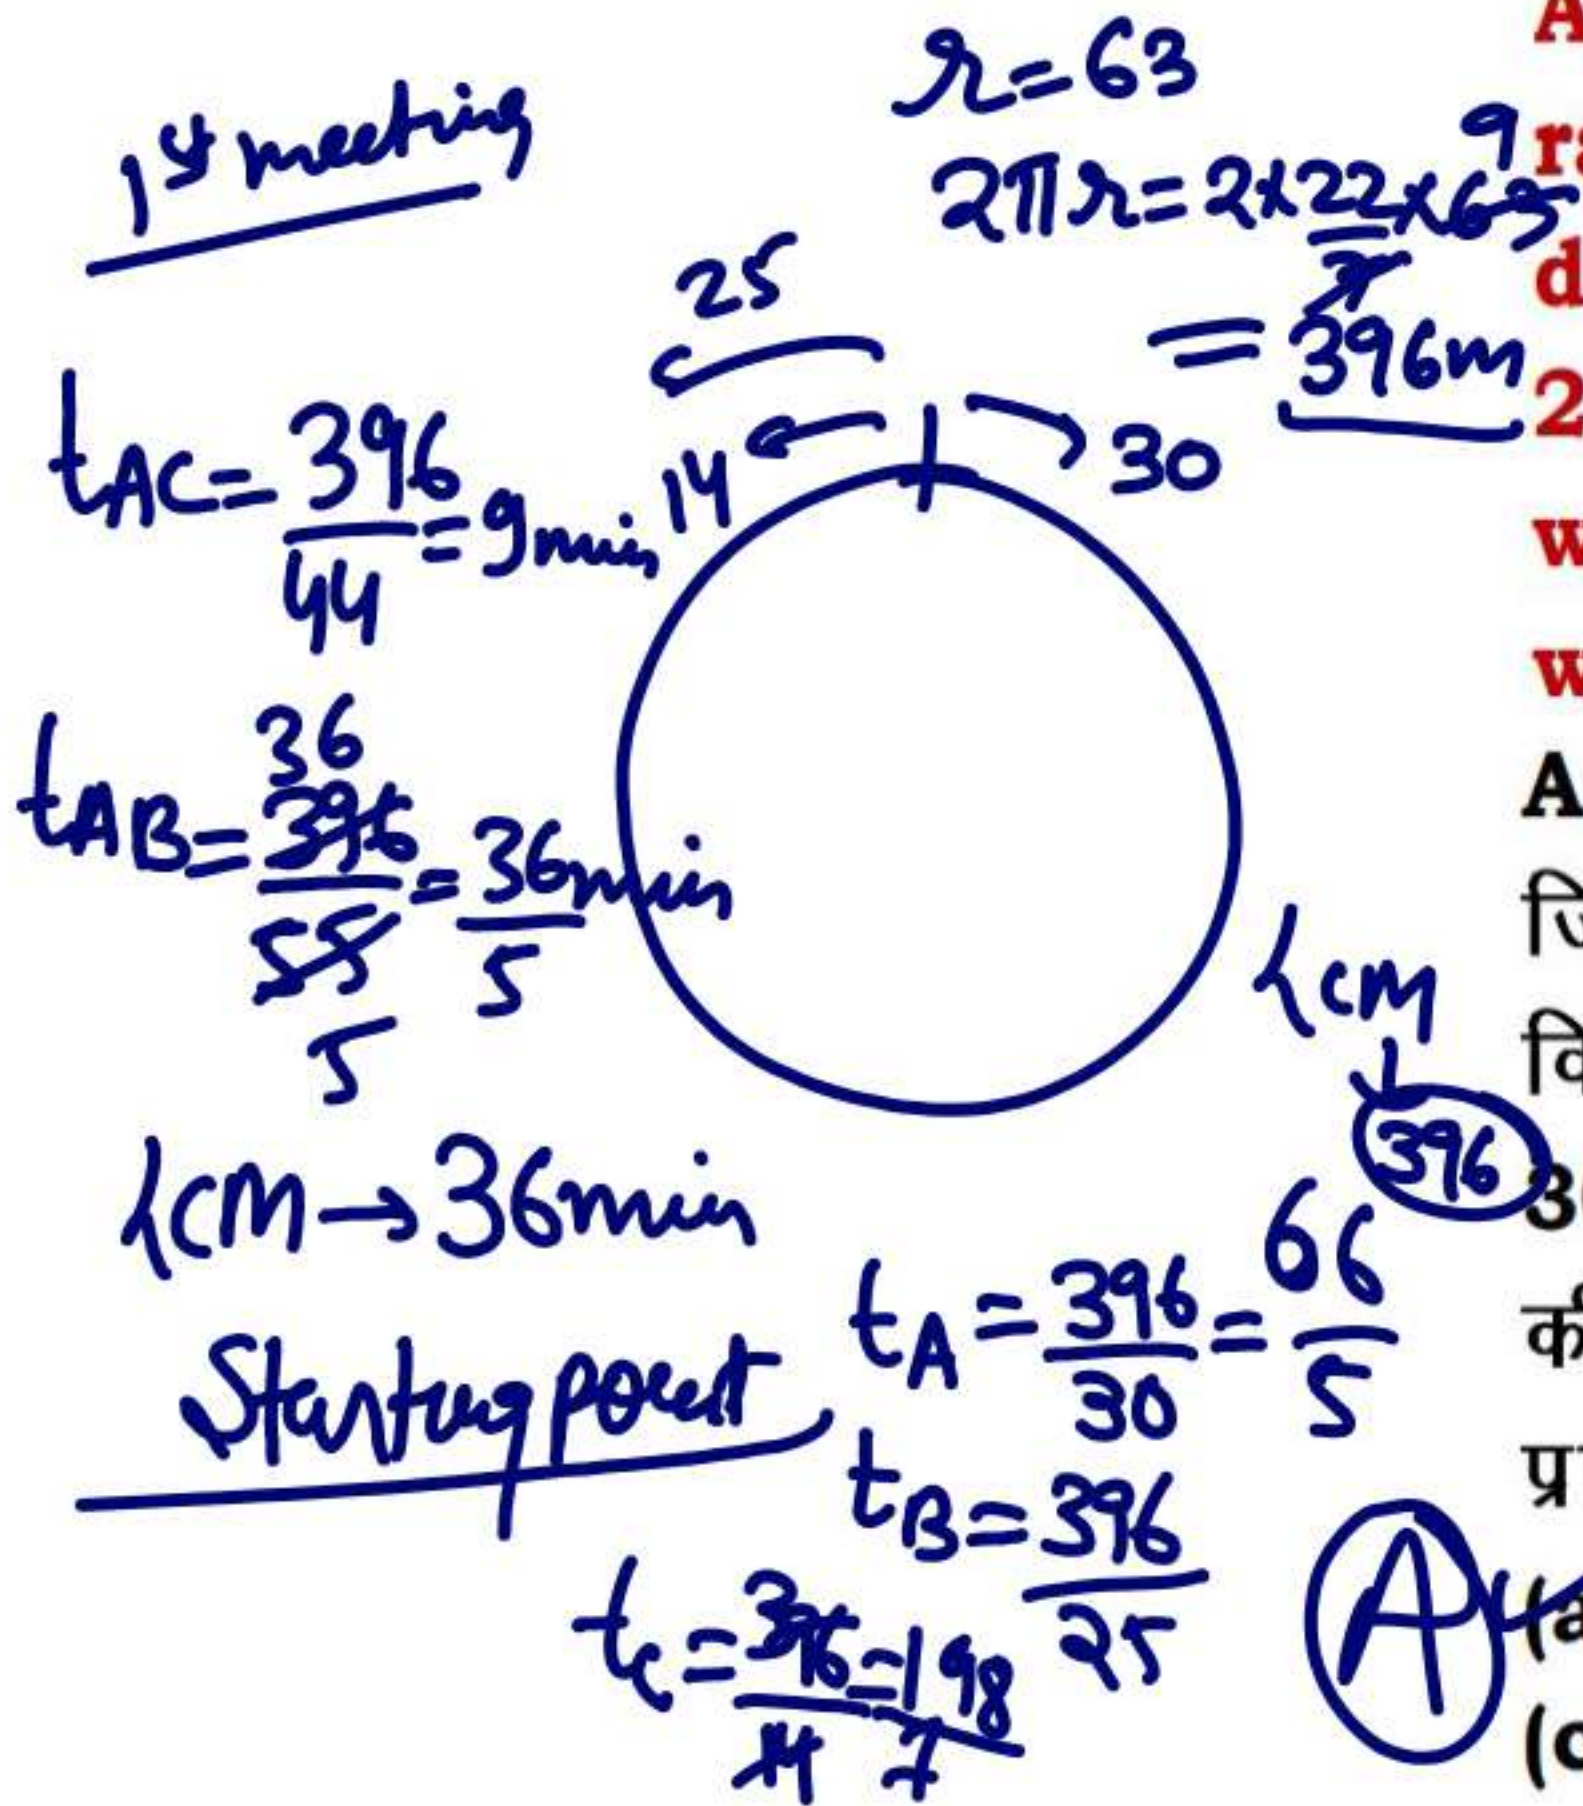 r = 63
1st meeting
2πr = 2 × 22/7 × 63 9
= 396m
25
14
30
tAC = 396/44 = 9min
36
tAB = 396/55 = 36/5 min
5
LCM → 36min
LCM
396
Starting point
tA = 396/30 = 66/5
tB = 396/25
tC = 396/14 = 198/7
A
A
ra
d
2
w
w
A
3
प्र
(a
(c